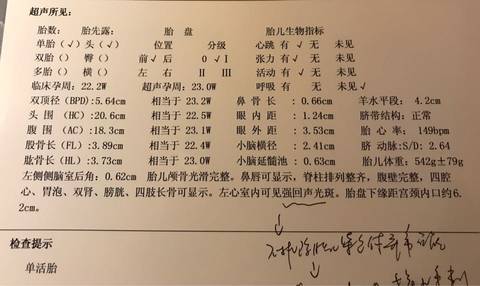 超声所见:
胎数: 胎先露: 胎 盘 胎儿生物指标
单胎(√) 头(√) 位置 分级 心跳 有√ 无 未见
双胎() 臀() 前√后 0 √Ⅰ 张力 有√ 无 未见
多胎() 横() 左 右 Ⅱ Ⅲ 活动 有√ 无 未见
临床孕周: 22.2W 超声孕周: 23.0W 呼吸 有 无 未见√
双顶径(BPD):5.64cm 相当于 23.2W 鼻骨长 : 0.66cm 羊水段平: 4.2cm
头 围 (HC):20.6cm 相当于 22.5W 眼内距 : 1.24cm 脐带结构: 正常
腹 围 (AC):18.3cm 相当于 23.1W 眼外距 : 3.53cm 胎心率: 149bpm
股骨长(FL):3.89cm 相当于 22.4W 小脑横径 : 2.41cm 脐动脉:S/D: 2.64
肱骨长(HL):3.73cm 相当于 23.0W 小脑延髓池 : 0.63cm 胎儿体重: 542g±79g
左侧侧脑室后角: 0.62cm 胎儿颅骨光滑完整。鼻唇可显示, 脊柱排列整齐, 腹壁完整, 四腔
心、胃泡、双肾、膀胱、四肢长骨可显示。左心室内可见强回声光斑。胎盘下缘距宫颈内口约6.
2cm。
检查提示
单活胎